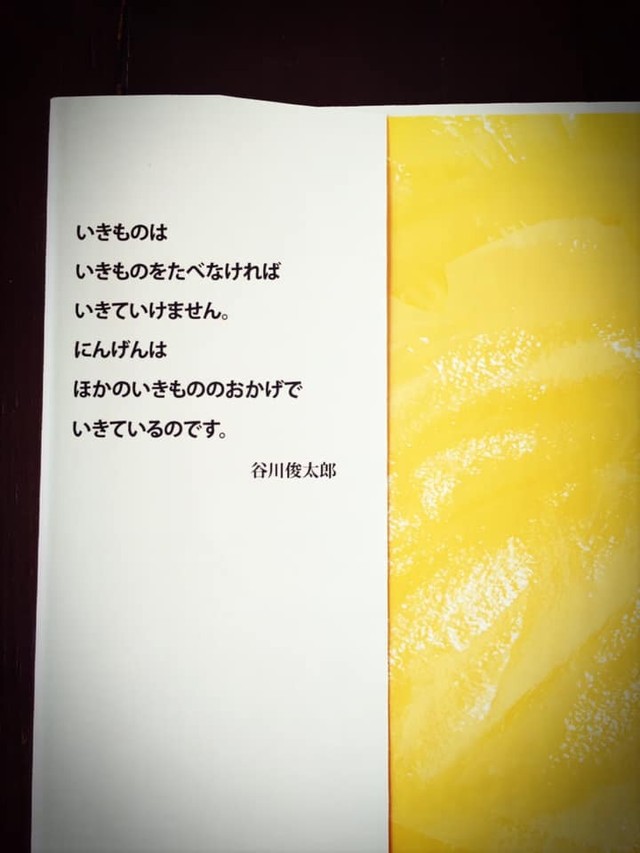 いきものは
いきものをたべなければ
いきていけません。
にんげんは
ほかのいきもののおかげで
いきているのです。
谷川俊太郎